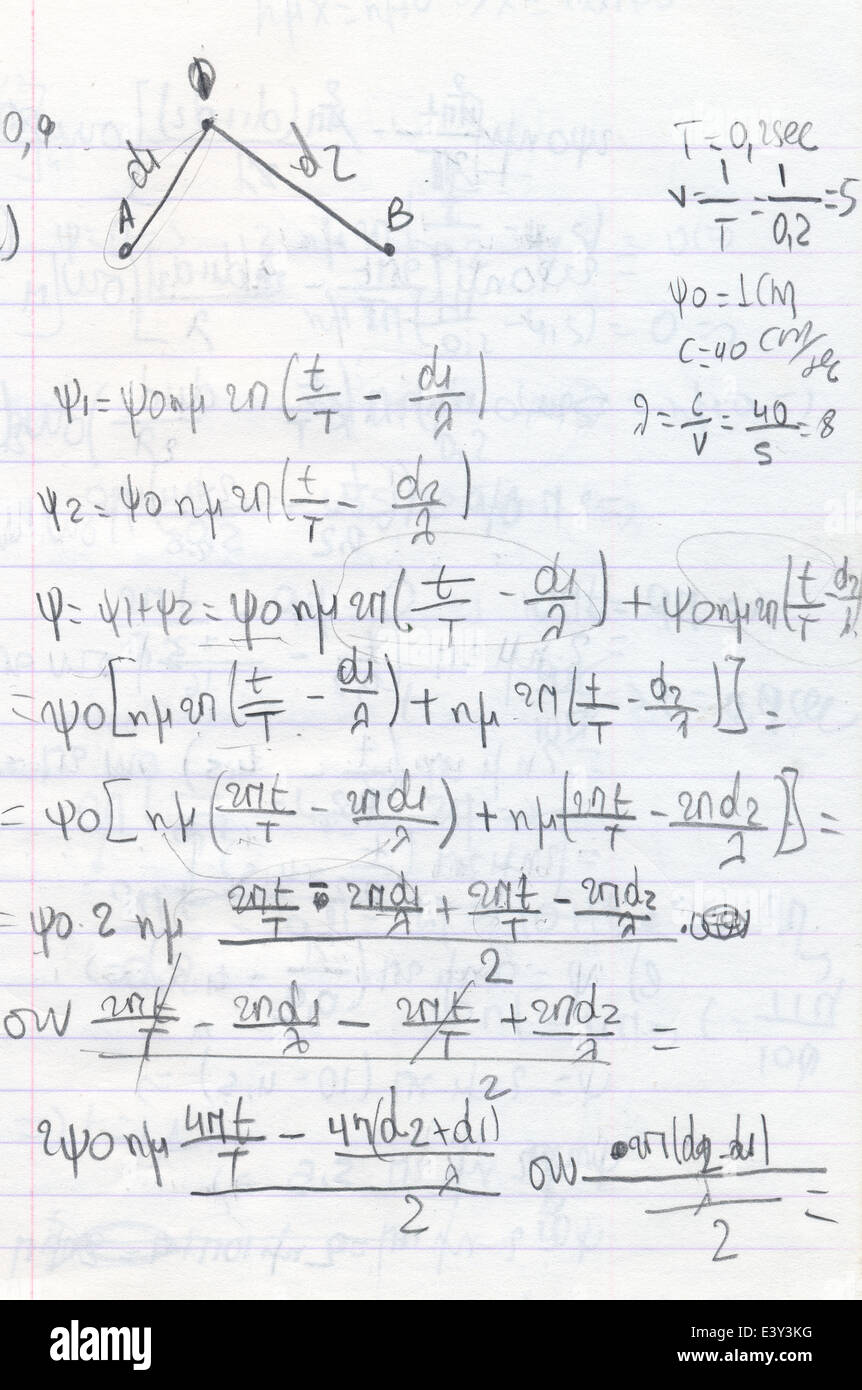 0,4.
d1
d2
A
B
T=0,2sec
ν=1/T=1/0,2=5
ψ0=1cm
c=40 cm/sec
λ=c/ν=40/5=8
ψ1=ψ0ημ2π(t/T - d1/λ)
ψ2=ψ0ημ2π(t/T - d2/λ)
ψ=ψ1+ψ2=ψ0ημ2π(t/T - d1/λ)+ψ0ημ2π(t/T - d2/λ
=ψ0[ημ2π(t/T - d1/λ)+ημ2π(t/T - d2/λ)]=
=ψ0[ημ(2πt/T - 2πd1/λ)+ημ(2πt/T - 2πd2/λ)]=
=ψ0·2ημ (2πt/T - 2πd1/λ + 2πt/T - 2πd2/λ)/2 ·
συν (2πt/T - 2πd1/λ - 2πt/T + 2πd2/λ)/2 =
2ψ0ημ (4πt/T - 4π(d2+d1)/λ)/2 συν (2π(d2-d1)/λ)/2 =
alamy
Image ID: E3Y3KG
www.alamy.com